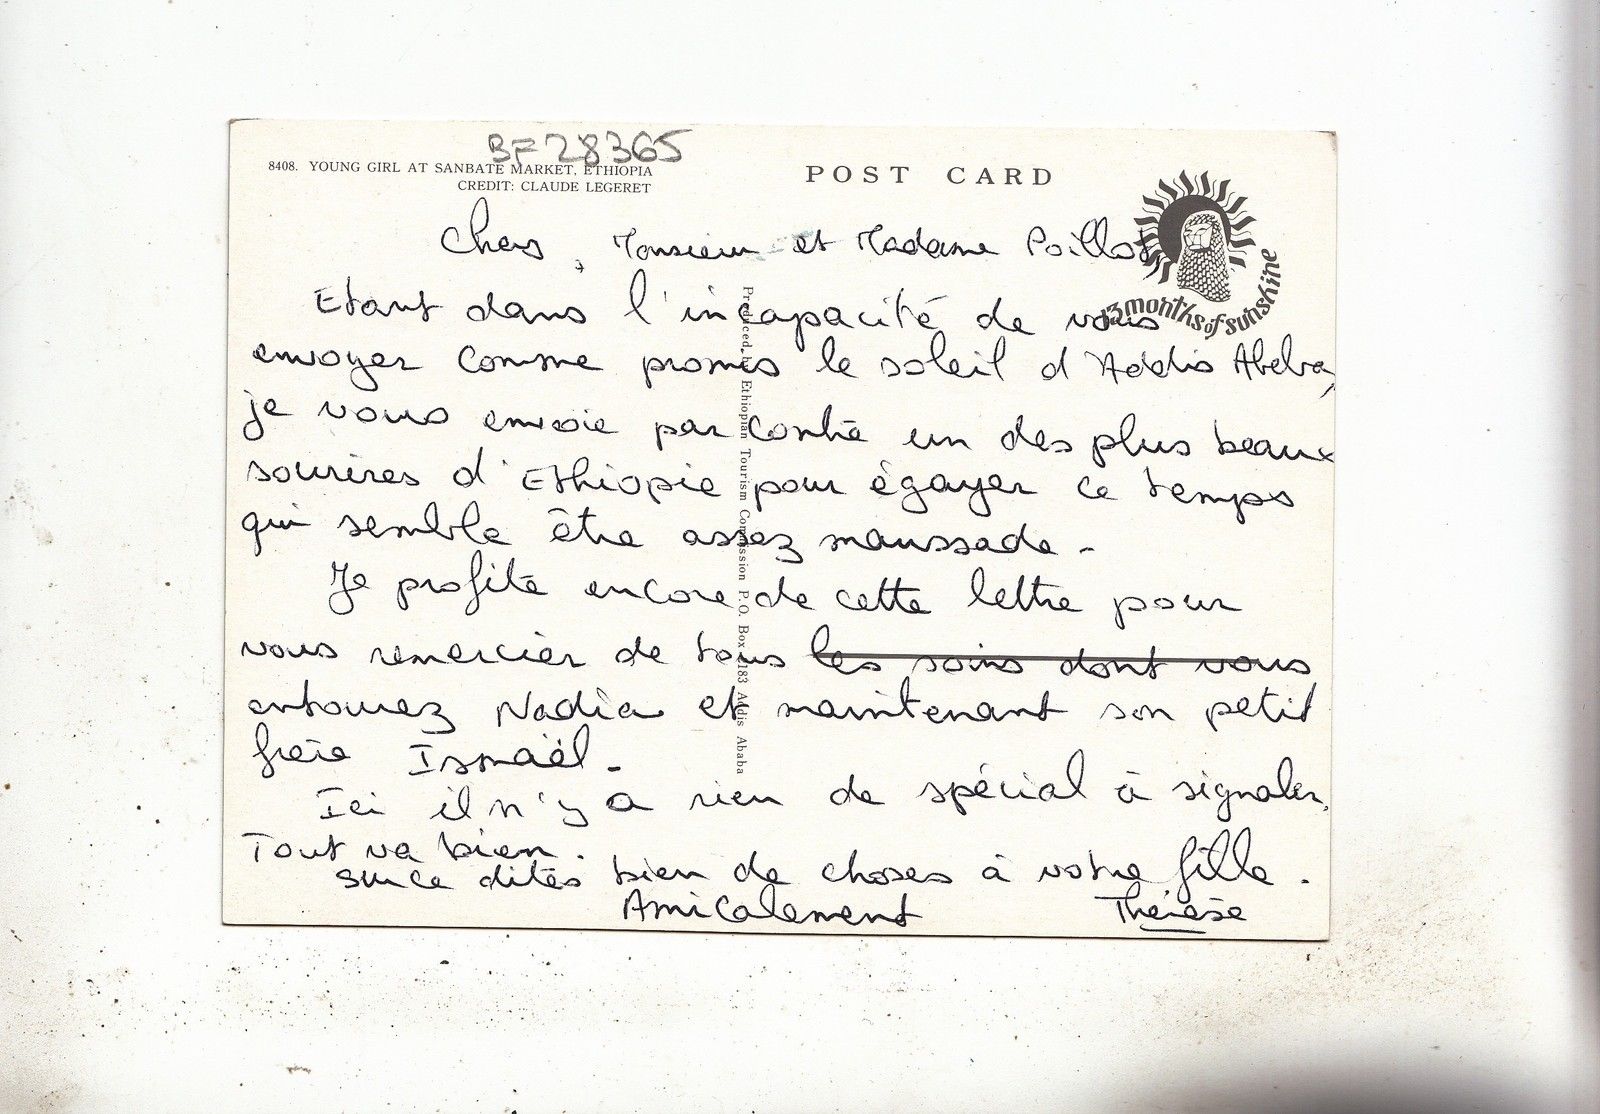 BF28365
8408. YOUNG GIRL AT SANBATE MARKET, ETHIOPIA
CREDIT: CLAUDE LEGERET
POST CARD
13 months of sunshine
Chers, Monsieur et Madame Poillot,
Etant dans l'incapacité de vous
envoyer comme promis le soleil d'Addis Abeba,
je vous envoie par contre un des plus beaux
sourires d'Ethiopie pour égayer ce temps
qui semble être assez maussade -
Je profite encore de cette lettre pour
vous remercier de tous les soins dont vous
entourez Nadia et maintenant son petit
frère Ismaël -
Ici il n'y a rien de spécial à signaler,
Tout va bien.
Sur ce dites bien de choses à votre fille.
Amicalement Thérèse
Produced by Ethiopian Tourism Commission P.O. Box 2183 Addis Ababa